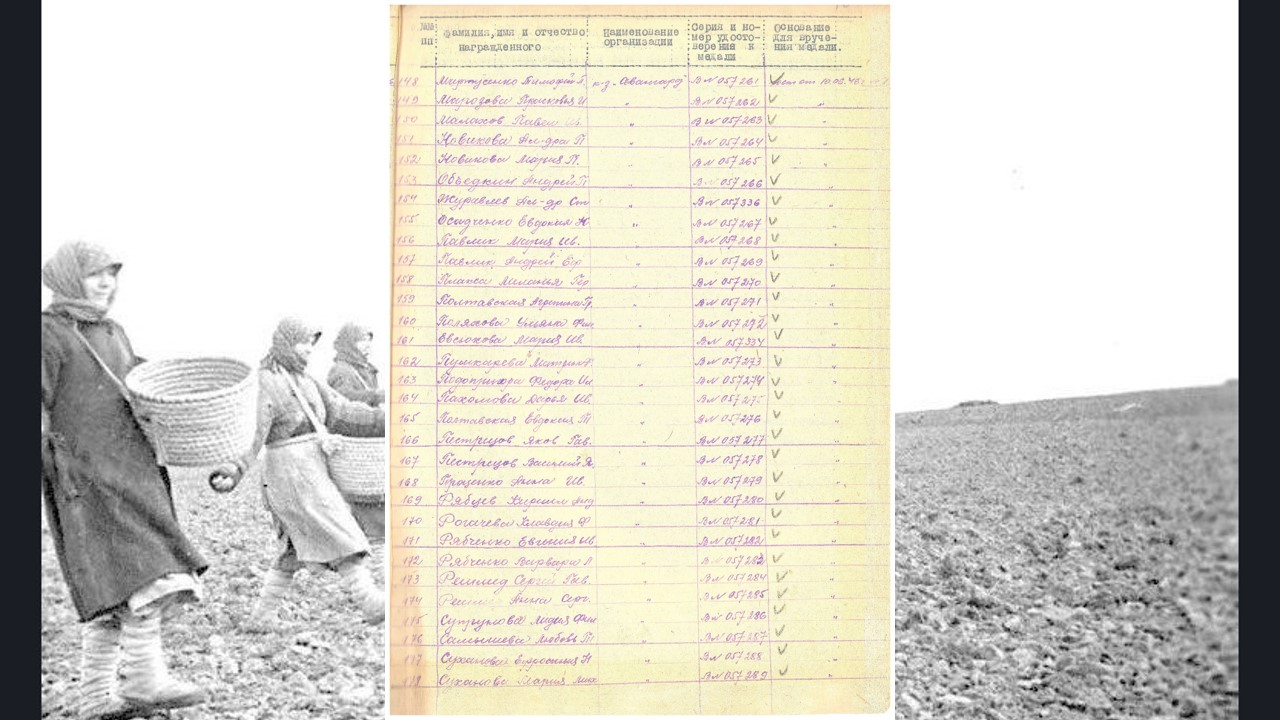 №№ пп Фамилия, имя и отчество награжденного Наименование организации Серия и номер удостоверения к медали Основание для вручения медали.
148 Тимофей к-з. Авангард ВN 057261 от 10.06.46
149 Морозова Прасковья И " ВN 057262 "
150 Малахов Павел Ив. " ВN 057263 "
151 Новикова Ал-дра П " ВN 057264 "
152 Новикова Мария П. " ВN 057265 "
153 Объедкин Андрей П " ВN 057266 "
154 Журавлев Ал-др Ст " ВN 057336 "
155 Осидченко Евдокия " ВN 057267 "
156 Павлик Мария Ив. " ВN 057268 "
157 Павлик Андрей " ВN 057269 "
158 Плакса Меланья " ВN 057270 "
159 Полтавская " ВN 057271 "
160 Полякова Ульяна Фил " ВN 057272 "
161 Евсюкова Мария Ив. " ВN 057334 "
162 Пушкарева " ВN 057273 "
163 Подопригора Федора " ВN 057274 "
164 Пахомова Дарья Ив. " ВN 057275 "
165 Полтавская Евдокия Т " ВN 057276 "
166 Пестрецов Яков Пав. " ВN 057277 "
167 Пестрецов Василий Я. " ВN 057278 "
168 Проценко Анна Ив. " ВN 057279 "
169 Рябцев Кирилл Анд " ВN 057280 "
170 Рогачева Клавдия Ф " ВN 057281 "
171 Рябченко Евгения Ив " ВN 057282 "
172 Рябченко Варвара Л " ВN 057283 "
173 Сергей Пав. " ВN 057284 "
174 Анна Серг. " ВN 057285 "
175 Супрунова Мария Фил " ВN 057286 "
176 Любовь П " ВN 057287 "
177 Суханова Н " ВN 057288 "
178 Суханова Мария " ВN 057289 "